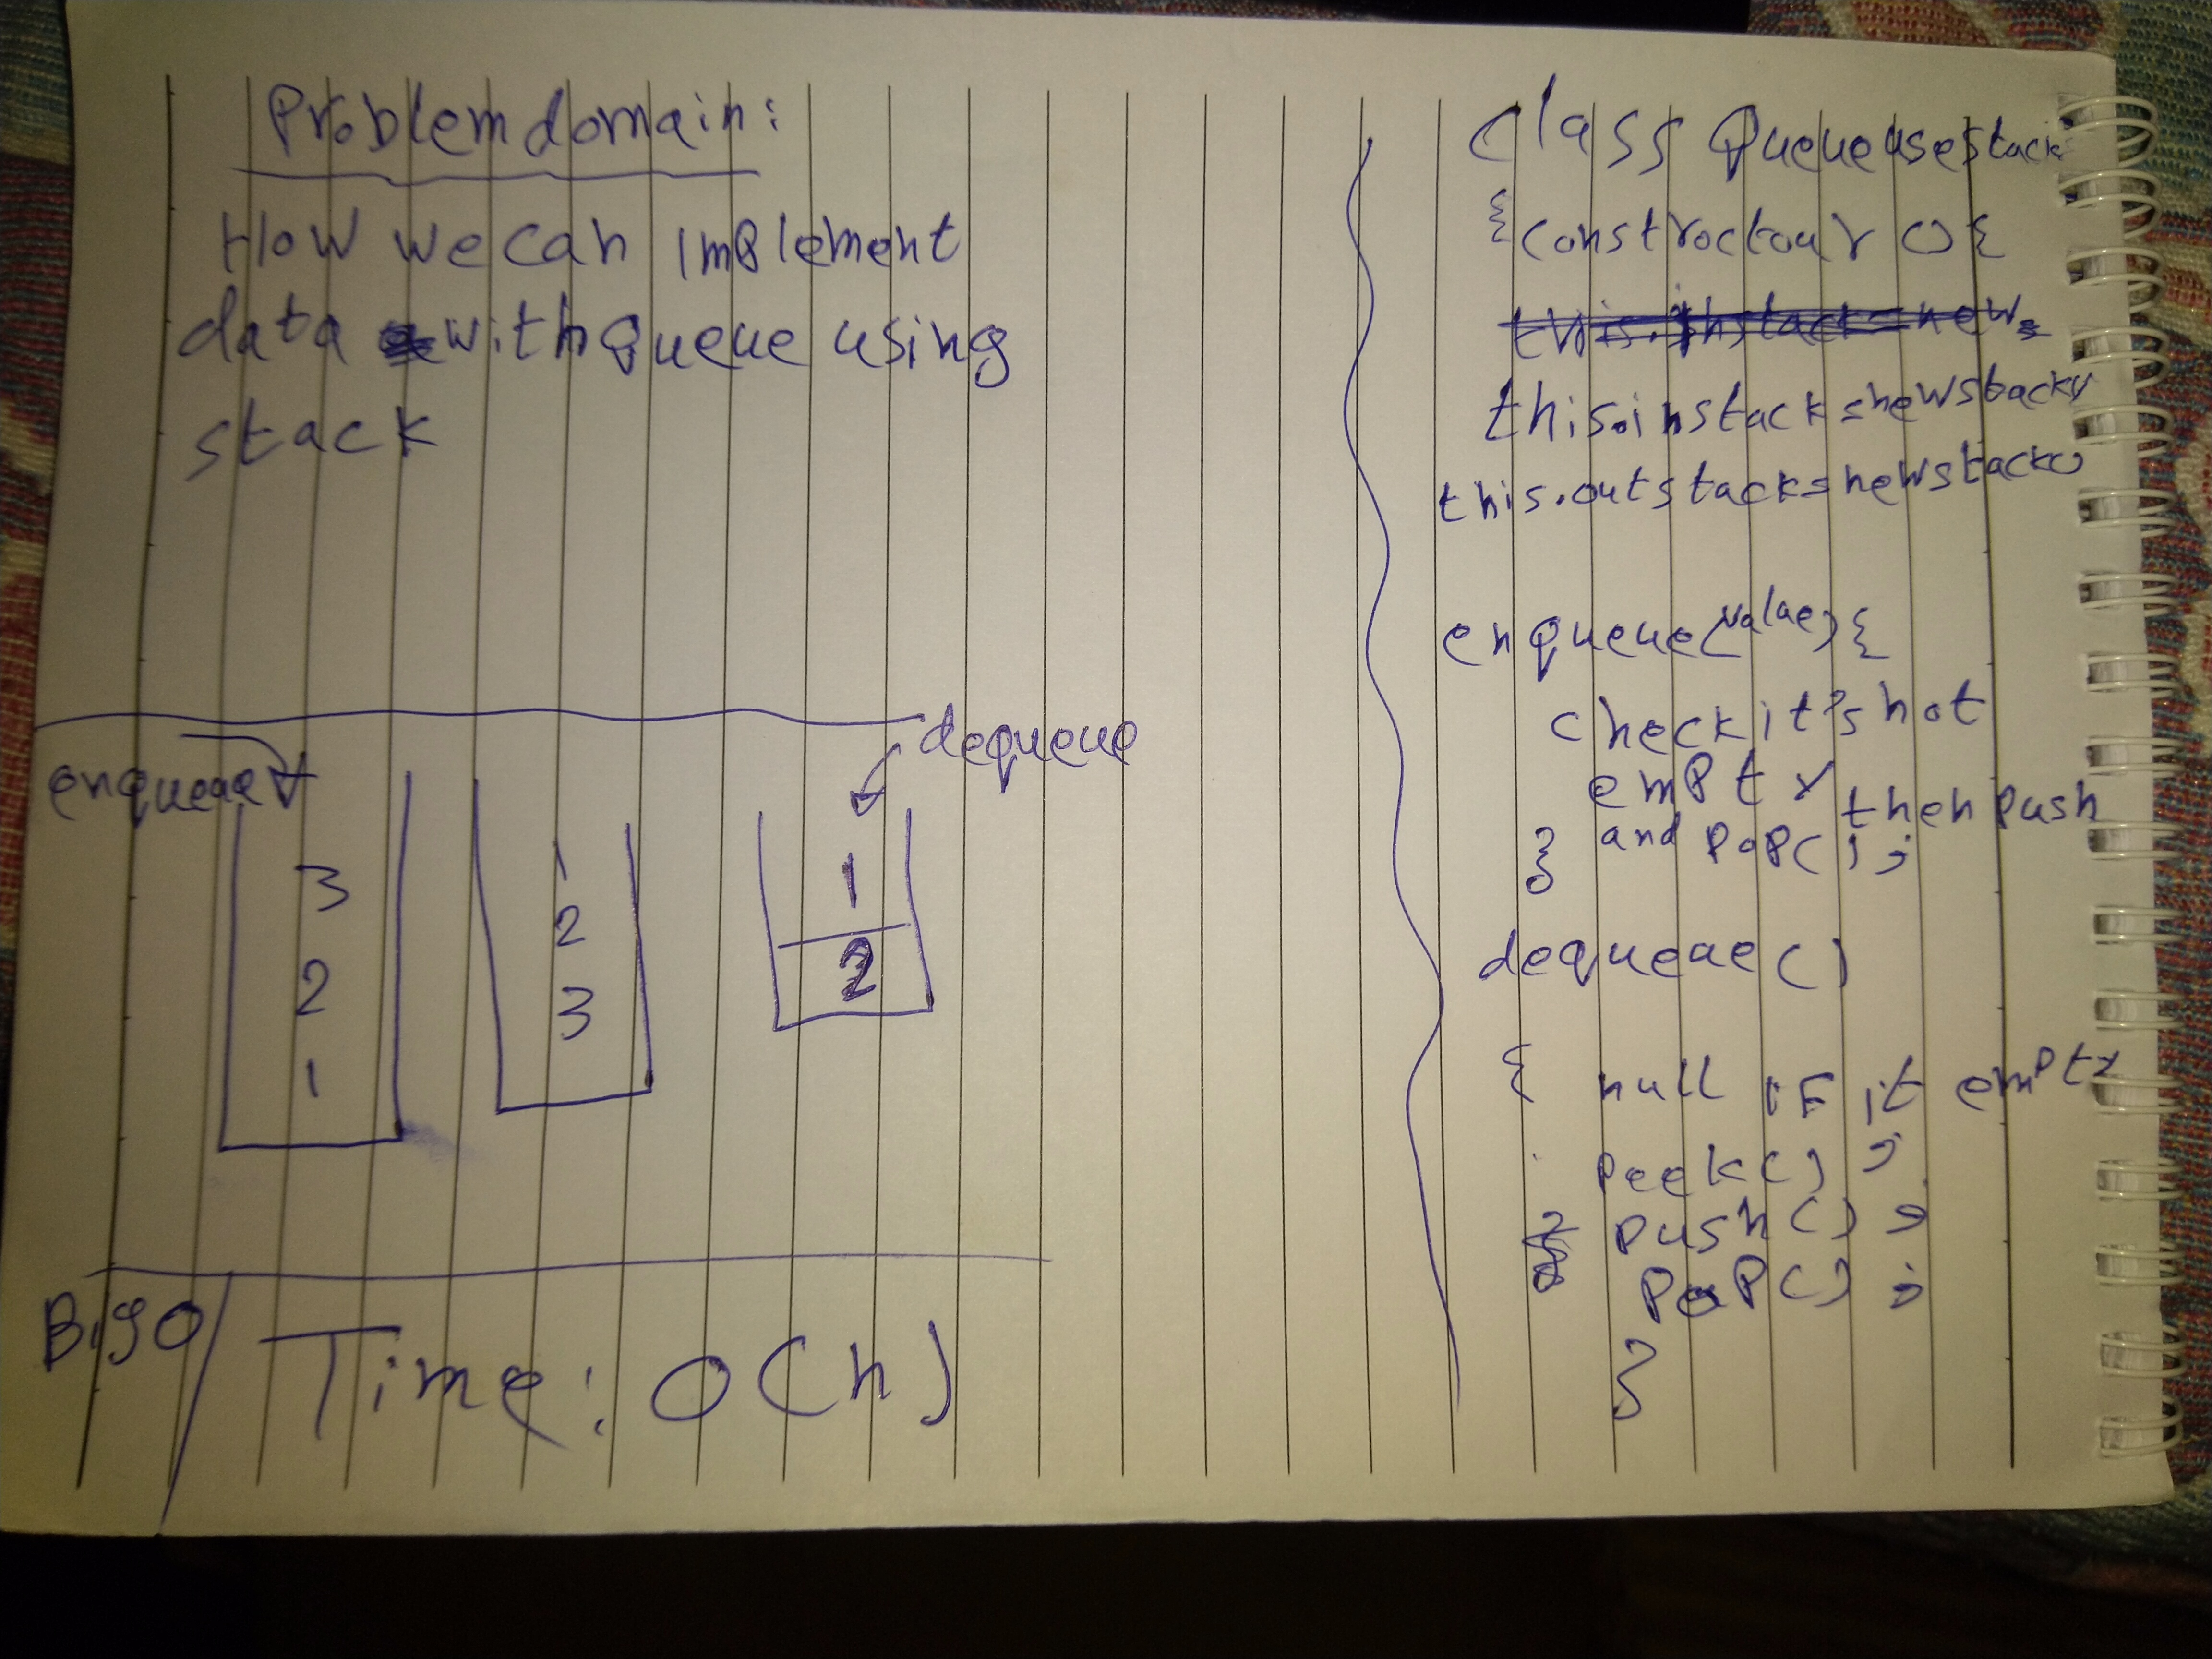 Problem domain:
How we can Implement
data with queue using
stack
enqueue
3
2
1
1
2
3
dequeue
1
2
Big O / Time: O(n)
Class queueusestack
{ constroctour () {
this.instack = new
this.instack = newstack()
this.outstack = newstack()
enqueue(value) {
check it's not
empty then push
and pop();
}
dequeue()
{ null if it empty
peek();
push();
pop();
}